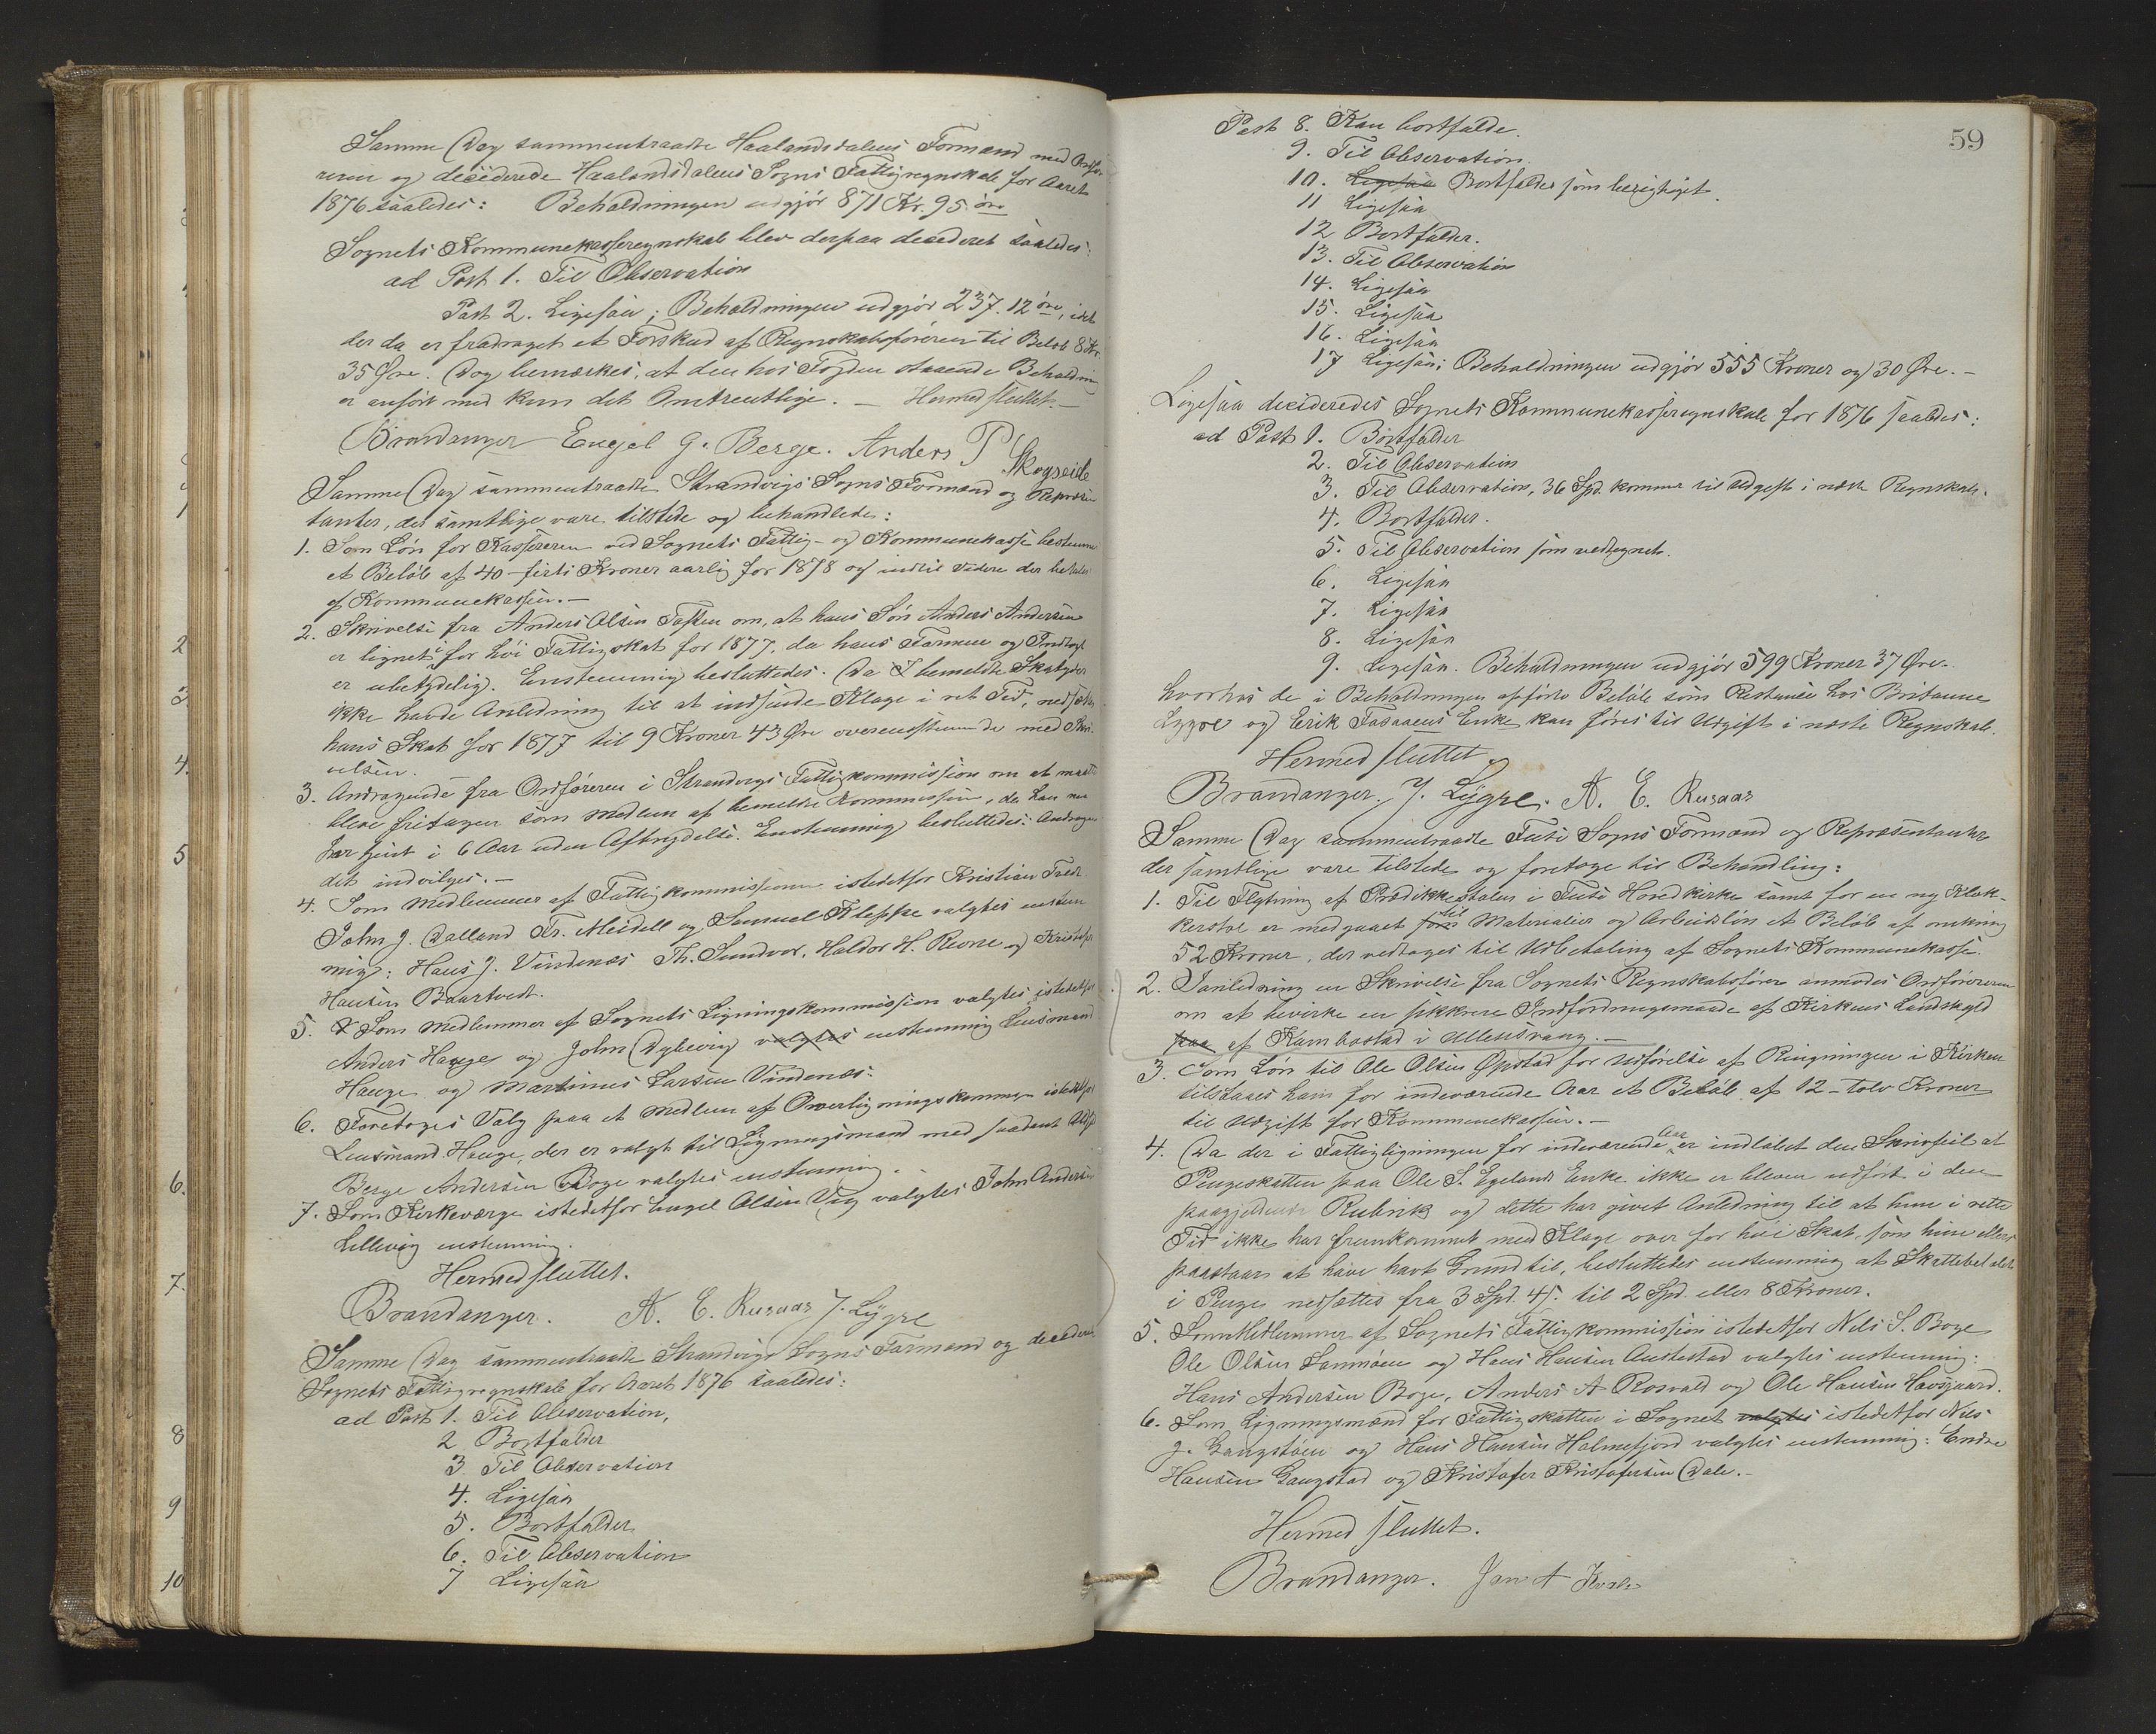 Samme Dag sammentraadte Haalandsdalens Formænd med Ordfø-
reren og deciderede Haalandsdalens Sogns Fattigregnskab for Aaret
1876 saaledes: Beholdningen udgjør 871 Kr. 95 øre
Sognets Kommunekasseregnskab blev derpaa decideret saaledes:
ad Post 1. Til Observation
Post 2. Ligesaa; Beholdningen udgjør 237. 12 øre, idet
der da er fradraget et Forskud af Regnskabsføreren til Beløb 8 Kr.
35 Øre. Dog bemærkes, at den hos Fogden staaende Beholdning
er anført med kun det Omtrentlige. — Hermed sluttet. —
Brandanger Engel G. Berge. Anders P Skogseide
Samme Dag sammentraadte Strandvigs Sogns Formænd og Repræsen
tanter, der samtlige vare tilstede og behandlede:
1. Som Løn for Kassereren ved Sognets Fattig- og Kommunekasse bestemmes
et Beløb af 40 - firti Kroner aarlig for 1878 og indtil videre der betales
af Kommunekassen. —
2. Skrivelse fra Anders Olsen om, at hans Søn Anders Andersen
er lignet i for høi Fattigskat for 1877, da hans Formue og Indtægt
er ubetydelig. Enstemmig besluttedes: Da bemeldte Skatyder
ikke havde Anledning til at indsende Klage i ret Tid, nedsættes
hans Skat for 1877 til 9 Kroner 43 Øre overensstemmende med Skri-
velsen.
3. Andragende fra Ordføreren i Strandvigs Fattigkommission om at maatte
blive fritagen som Medlem af bemeldte Kommission, da han nu
har tjent i 6 Aar uden Afbrydelse. Enstemmig besluttedes: Andragen
det indvilges. —
4. Som Medlemmer af Fattigkommissionen istedetfor Kristian
John J. Dalland Fr. Meidell og Samuel Kleppe valgtes enstem
mig: Hans J. Vindenæs Th. Sundvor, Haldor H. Revne og Kristofer
Hansen Baartvedt.
5. Som Medlemmer af Sognets Ligningskommission valgtes istedetfor
Anders Hauge og John Dybevig valgtes enstemmig Lensmand
Hauge og Martinus Larsen Vindenæs.
6. Foretoges Valg paa et Medlem af Overligningskommission istedetfor
Lensmand Hauge, der er valgt til Ligningsmand med saadant Udfald
Berge Andersen Boge valgtes enstemmig.
7. Som Kirkeværge istedetfor Engel Olsen Vig valgtes John Andersen
Lillevig enstemmig.
Hermed sluttet.
Brandanger. A. E. Rusaas J. Lygre
Samme Dag sammentraadte Strandvigs Sogns Formænd og deciderede
Sognets Fattigregnskab for Aaret 1876 saaledes:
ad Post 1. Til Observation,
2 Bortfalder
3. Til Observation
4. Ligesaa
5. Bortfalder
6. Til Observation
7 Ligesaa
59
Post 8. Kan bortfalde.
9. Til Observation.
10. Ligesaa Bortfalder som berigtiget.
11 Ligesaa
12 Bortfalder.
13. Til Observation
14. Ligesaa
15. Ligesaa
16. Ligesaa
17 Ligesaa; Beholdningen udgjør 555 Kroner og 30 Øre. —
Ligesaa decideredes Sognets Kommunekasseregnskab for 1876 saaledes:
ad Post 1. Bortfalder
2. Til Observation
3. Til Observation, 36 Spd. kommer til Udgift i næste Regnskab.
4. Bortfalder.
5. Til Observation som vedtegnet.
6. Ligesaa
7. Ligesaa
8. Ligesaa
9. Ligesaa. Beholdningen udgjør 599 Kroner 37 Øre.
hvorhos de i Beholdningen opførte Beløb som Restance hos Britanne
Lygre og Erik Enke kan føres til Udgift i næste Regnskab.
Hermed sluttet.
Brandanger. J. Lygre. A. E. Rusaas
Samme Dag sammentraadte Fuse Sogns Formænd og Repræsentanter
der samtlige vare tilstede og foretoge til Behandling:
1. Til Flytning af Prædikkestolen i Fuse Hovedkirke samt for en ny Klok-
kerstol er medgaaet for til Materialier og Arbeidsløn et Beløb af omkring
52 Kroner, der vedtages til Udbetaling af Sognets Kommunekasse.
2. I anledning en Skrivelse fra Sognets Regnskabsfører anmodes Ordføreren
om at bevirke en sikkrere Indfordringsmaade af Kirkens Landskyld
paa af Kambestad i Ullensvang. —
3. Som Løn til Ole Olsen Opstad for Udførelse af Ringningen i Kirken
tilstaaes ham for indeværende Aar et Beløb af 12 - tolv Kroner
til Udgift for Kommunekassen. —
4. Da der i Fattigligningen for indeværende Aar er indløbet den Skrivfeil at
Pengeskatten paa Ole S. Egelands Enke ikke er bleven udført i den
paagjeldende Rubrik og dette har givet Anledning til at hun i rette
Tid ikke har fremkommet med Klage over for høi Skat, som hun ellers
paastaar at have havt Grund til, besluttedes enstemmig at Skattebeløbet
i Penge nedsættes fra 3 Spd. 4 til 2 Spd. eller 8 Kroner.
5. Som Medlemmer af Sognets Fattigkommission istedetfor Nils S. Boge
Ole Olsen Samnøen og Hans Hansen Austestad valgtes enstemmig:
Hans Andersen Boge, Anders A Rosvald og Ole Hansen Havsgaard.
6. Som Ligningsmænd for Fattigskatten i Sognet valgtes istedetfor Nils
J. Gangstøen og Hans Hansen Holmefjord valgtes enstemmig: Endre
Hansen Gangstad og Kristofer Kristofersen Dale. —
Hermed sluttet.
Brandanger. Jon A Kvale